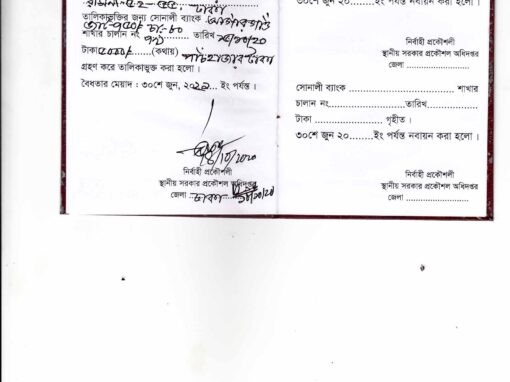 তালিকাভুক্তির জন্য সোনালী ব্যাংক
শাখার চালান নং ৭৯ তারিখ ২৫/১০/২০
টাকা ৫০০০/ (কথায়) পাঁচ হাজার টাকা
গ্রহণ করে তালিকাভুক্ত করা হলো ।
বৈধতার মেয়াদ : ৩০শে জুন, ২০২১... ইং পর্যন্ত ।
/10/2020
নির্বাহী প্রকৌশলী
স্থানীয় সরকার প্রকৌশল অধিদপ্তর
জেলা ঢাকা
৩০শে জুন ২০........ইং পর্যন্ত নবায়ন করা হলো ।
নির্বাহী প্রকৌশলী
স্থানীয় সরকার প্রকৌশল অধিদপ্তর
জেলা ........................
সোনালী ব্যাংক ........................................ শাখার
চালান নং..............................তারিখ....................
টাকা .............................. গৃহীত ।
৩০শে জুন ২০........ইং পর্যন্ত নবায়ন করা হলো ।
নির্বাহী প্রকৌশলী
স্থানীয় সরকার প্রকৌশল অধিদপ্তর
জেলা ........................